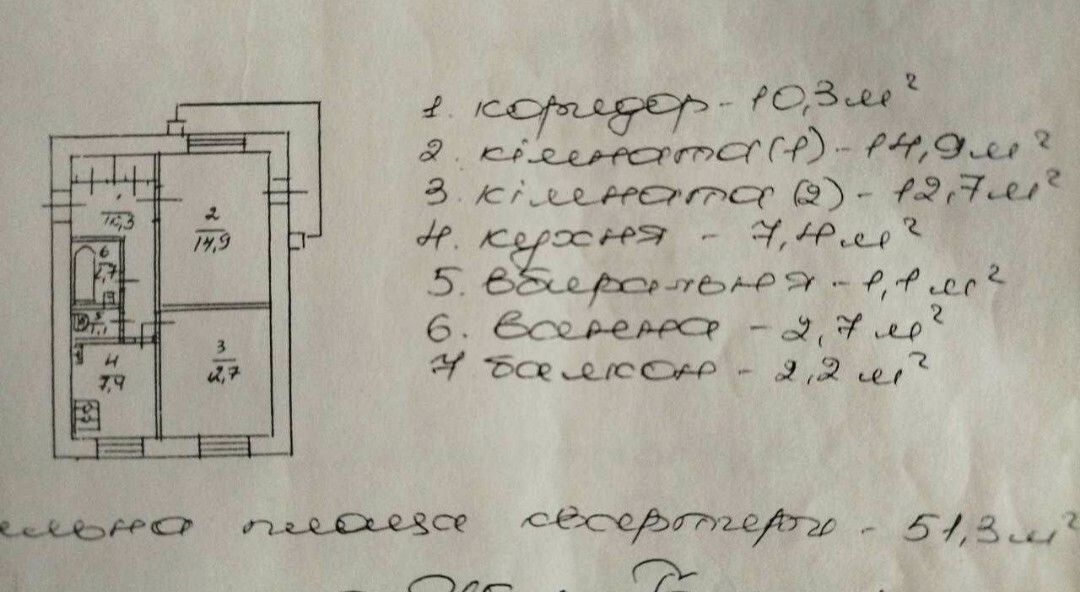 1. коридор - 10,3 м²
2. кімната (1) - 14,9 м²
3. кімната (2) - 12,7 м²
4. кухня - 7,4 м²
5. вбиральня - 1,1 м²
6. ванна - 2,7 м²
7 балкон - 2,2 м²
1
10,3
2
14,9
6
2,7
5
1,1
4
7,4
3
12,7
альна площа квартири - 51,3 м²